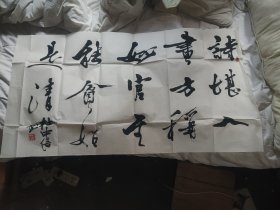 詩堪入
畫方稱
妙官至
能貧始
見清